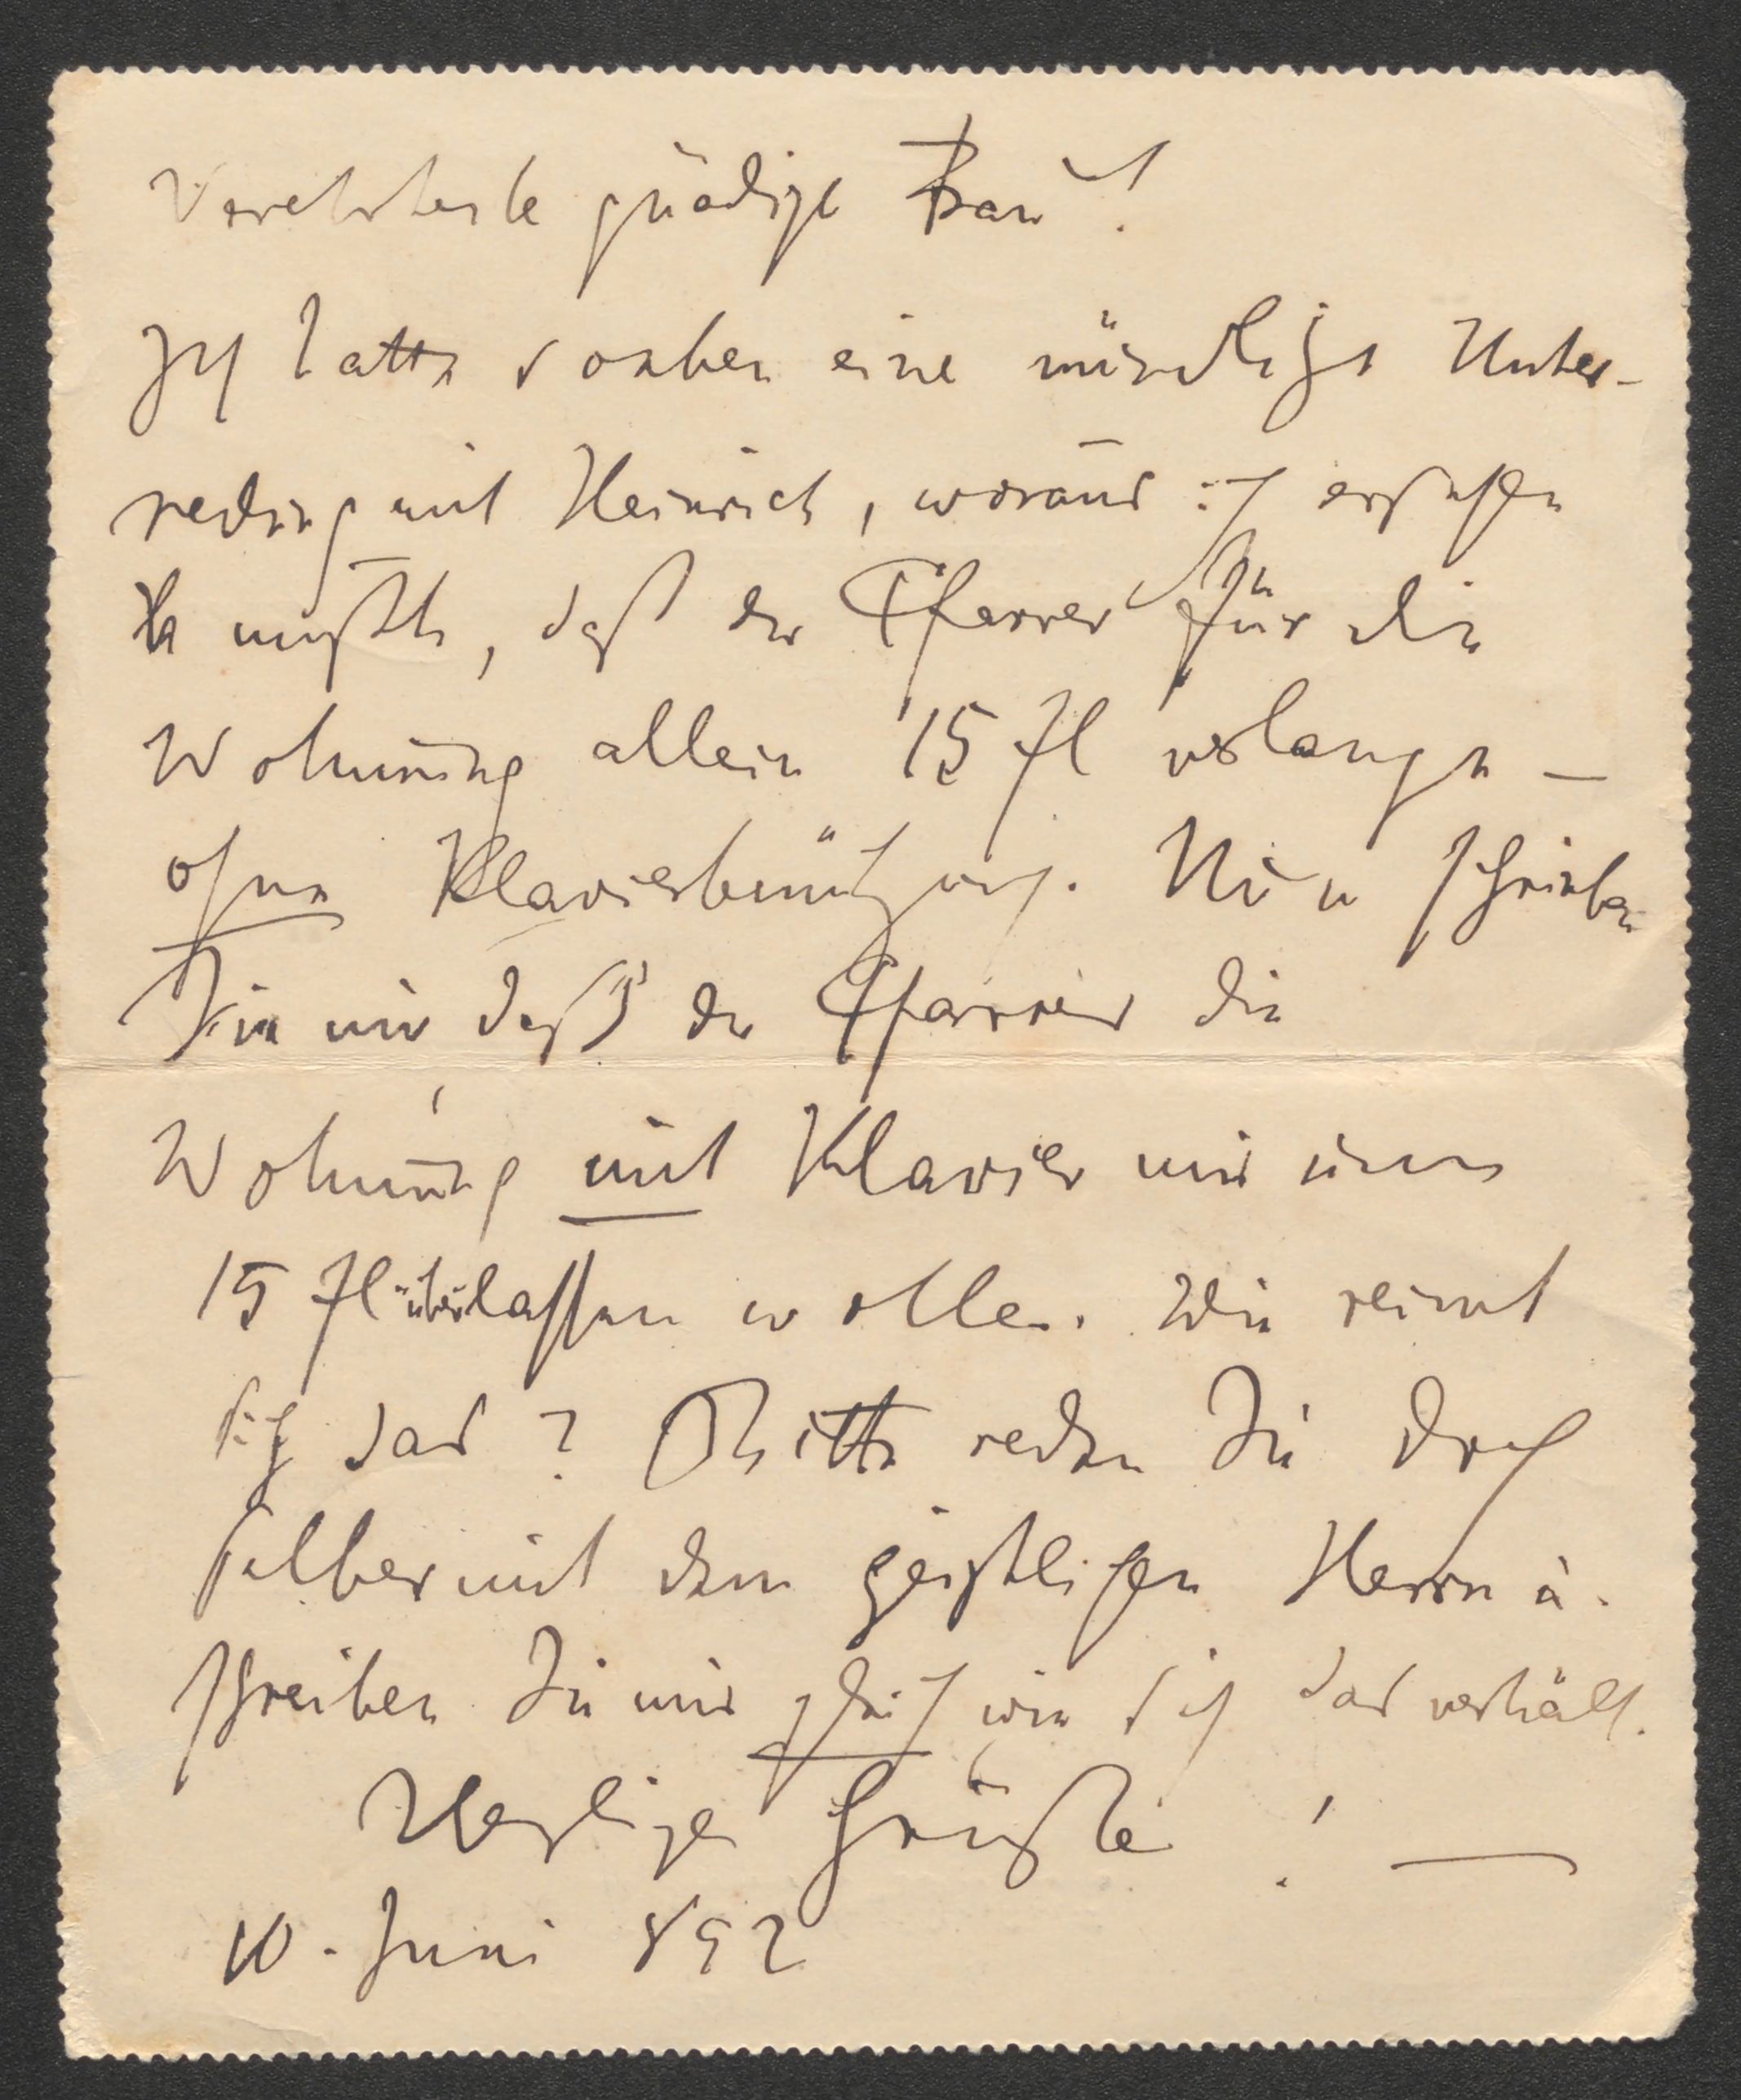 Verehrteste gnädige Frau!
Ich hatte soeben eine mündliche Unter-
redung mit Heinrich, woraus ich ersehen
mußte, daß der Pfarrer für die
Wohnung allein 15 fl verlange –
ohne Klavierbenützung. Nun schrieben
Sie mir daß der Pfarrer die
Wohnung mit Klavier mir um
15 fl überlassen wolle. Wie reimt
sich das? Bitte reden Sie doch
selber mit dem geistlichen Herrn u.
schreiben Sie mir gleich wie sich das verhält.
Herzliche Grüße! —
10. Juni 892